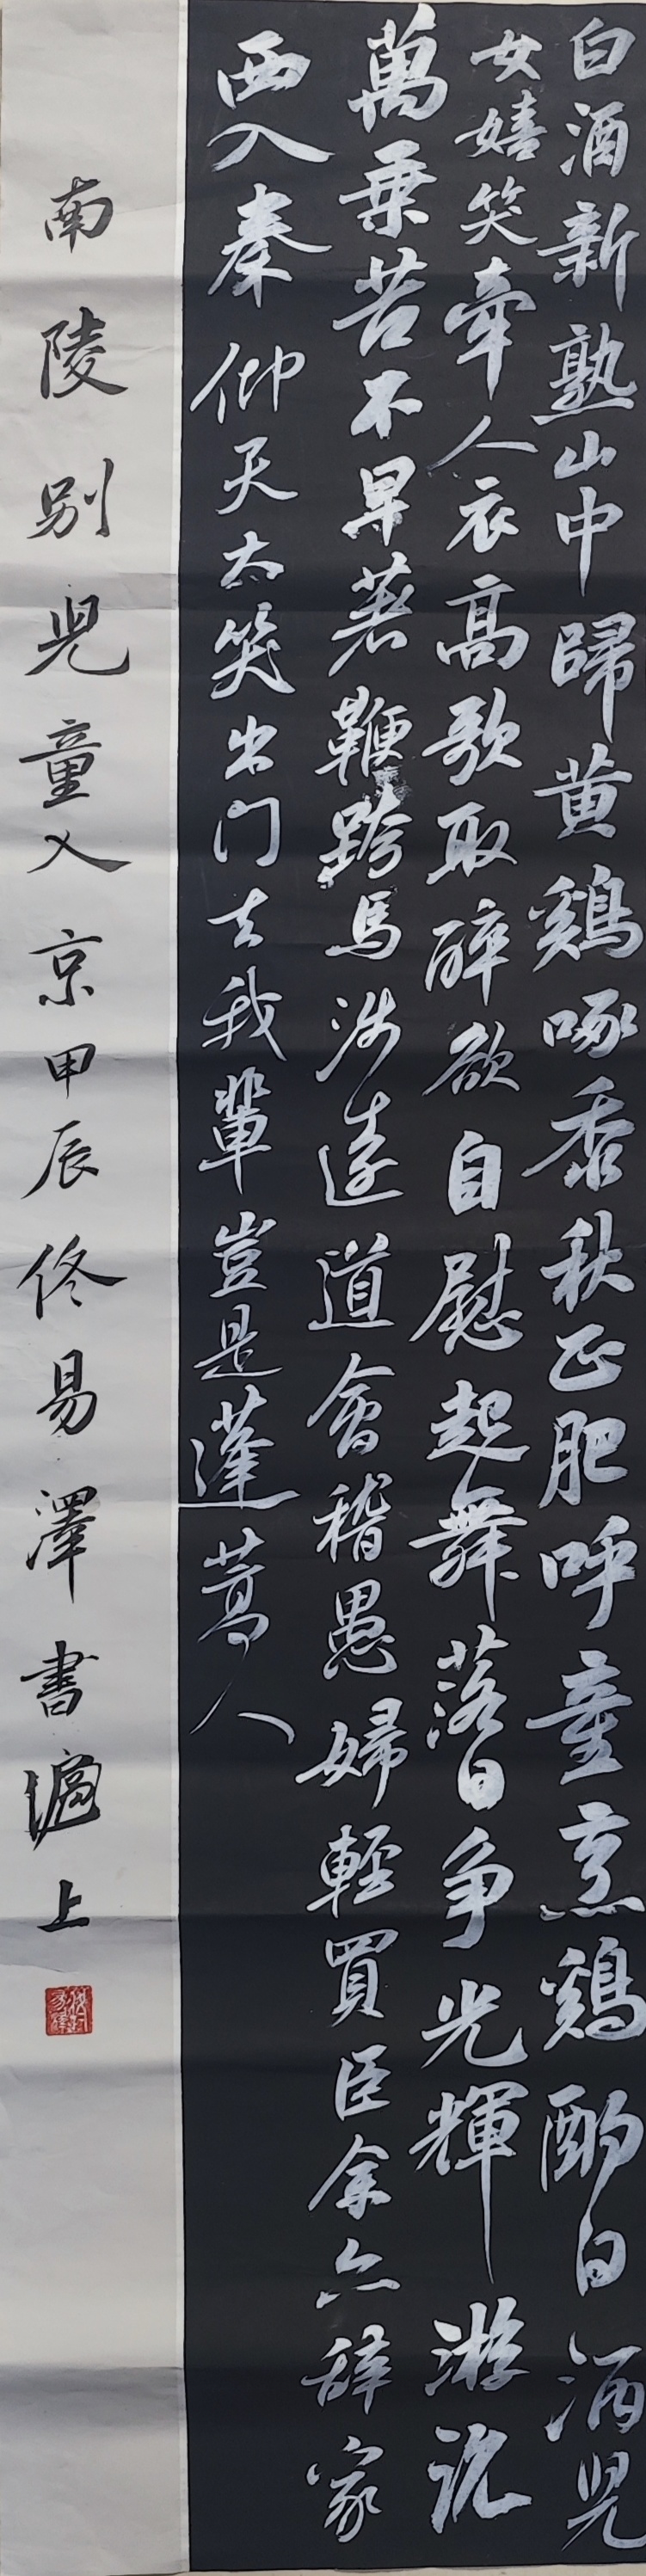 白酒新熟山中歸黄鷄啄黍秋正肥呼童烹鷄酌白酒兒
女嬉笑牽人衣高歌取醉欲自慰起舞落日争光輝游説
萬乗苦不早著鞭跨馬涉遠道會稽愚婦輕買臣余亦辞家
西入秦仰天大笑出門去我輩豈是蓬蒿人
南陵别兒童入京甲辰佟易澤書 上